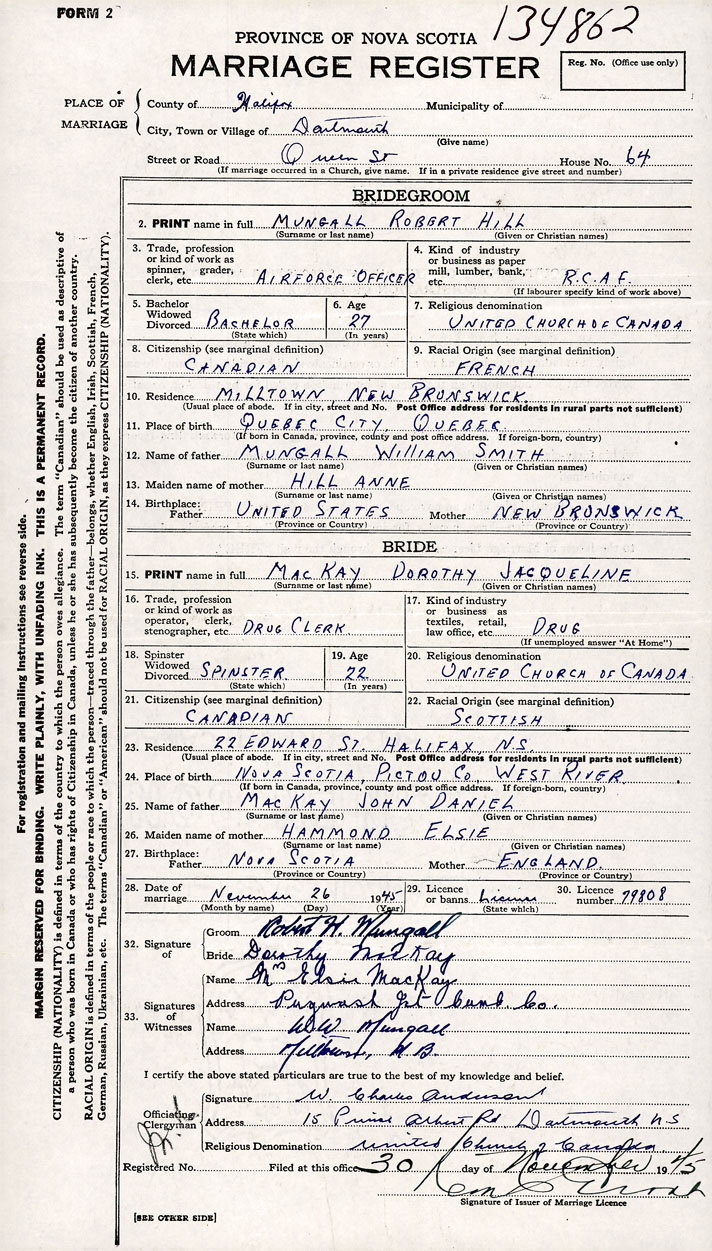 FORM 2
134862
PROVINCE OF NOVA SCOTIA
MARRIAGE REGISTER
Reg. No. (Office use only)
PLACE OF MARRIAGE
County of Halifax Municipality of
City, Town or Village of Dartmouth
(Give name)
Street or Road Queen St House No. 64
(If marriage occurred in a Church, give name. If in a private residence give street and number)
BRIDEGROOM
2. PRINT name in full MUNGALL ROBERT HILL
(Surname or last name) (Given or Christian names)
3. Trade, profession or kind of work as spinner, grader, clerk, etc. AIRFORCE OFFICER
4. Kind of industry or business as paper mill, lumber, bank, etc. R.C.A.F.
(If labourer specify kind of work above)
5. Bachelor Widowed Divorced BACHELOR
(State which)
6. Age 27
(In years)
7. Religious denomination
UNITED CHURCH OF CANADA
8. Citizenship (see marginal definition)
CANADIAN
9. Racial Origin (see marginal definition)
FRENCH
10. Residence MILLTOWN, NEW BRUNSWICK.
(Usual place of abode. If in city, street and No. Post Office address for residents in rural parts not sufficient)
11. Place of birth QUEBEC CITY QUEBEC.
(If born in Canada, province, county and post office address. If foreign-born, country)
12. Name of father MUNGALL WILLIAM SMITH
(Surname or last name) (Given or Christian names)
13. Maiden name of mother HILL ANNE
(Surname or last name) (Given or Christian names)
14. Birthplace: Father UNITED STATES Mother NEW BRUNSWICK
(Province or Country) (Province or Country)
BRIDE
15. PRINT name in full MACKAY DOROTHY JACQUELINE
(Surname or last name) (Given or Christian names)
16. Trade, profession or kind of work as operator, clerk, stenographer, etc DRUG CLERK
17. Kind of industry or business as textiles, retail, law office, etc. DRUG
(If unemployed answer "At Home")
18. Spinster Widowed Divorced SPINSTER
(State which)
19. Age 22
(In years)
20. Religious denomination
UNITED CHURCH OF CANADA
21. Citizenship (see marginal definition)
CANADIAN
22. Racial Origin (see marginal definition)
SCOTTISH
23. Residence 22 EDWARD ST. HALIFAX, N.S.
(Usual place of abode. If in city, street and No. Post Office address for residents in rural parts not sufficient)
24. Place of birth NOVA SCOTIA, PICTOU CO, WEST RIVER.
(If born in Canada, province, county and post office address. If foreign-born, country)
25. Name of father MACKAY JOHN DANIEL
(Surname or last name) (Given or Christian names)
26. Maiden name of mother HAMMOND ELSIE
(Surname or last name) (Given or Christian names)
27. Birthplace: Father NOVA SCOTIA Mother ENGLAND.
(Province or Country) (Province or Country)
28. Date of marriage November 26 1945
(Month by name) (Day) (Year)
29. Licence or banns License
(State which)
30. Licence number 79808
32. Signature of
Groom Robert H. Mungall
Bride Dorothy MacKay
33. Signatures of Witnesses
Name Mrs Elsie MacKay
Address Pugwash Jct Cumb. Co.
Name W.W. Mungall
Address Milltown, N.B.
I certify the above stated particulars are true to the best of my knowledge and belief.
Officiating Clergyman
Signature W. Charles Anderson
Address 15 Prince Albert Rd Dartmouth NS
Religious Denomination United Church of Canada
Registered No. Filed at this office 30 day of November 1945
Signature of Issuer of Marriage Licence
[SEE OTHER SIDE]
For registration and mailing instructions see reverse side.
MARGIN RESERVED FOR BINDING. WRITE PLAINLY, WITH UNFADING INK. THIS IS A PERMANENT RECORD.
CITIZENSHIP (NATIONALITY) is defined in terms of the country to which the person owes allegiance. The term "Canadian" should be used as descriptive of
a person who was born in Canada or who has rights of Citizenship in Canada, unless he or she has subsequently become the citizen of another country.
RACIAL ORIGIN is defined in terms of the people or race to which the person—traced through the father—belongs, whether English, Irish, Scottish, French,
German, Russian, Ukrainian, etc. The terms "Canadian" or "American" should not be used for RACIAL ORIGIN, as they express CITIZENSHIP (NATIONALITY).